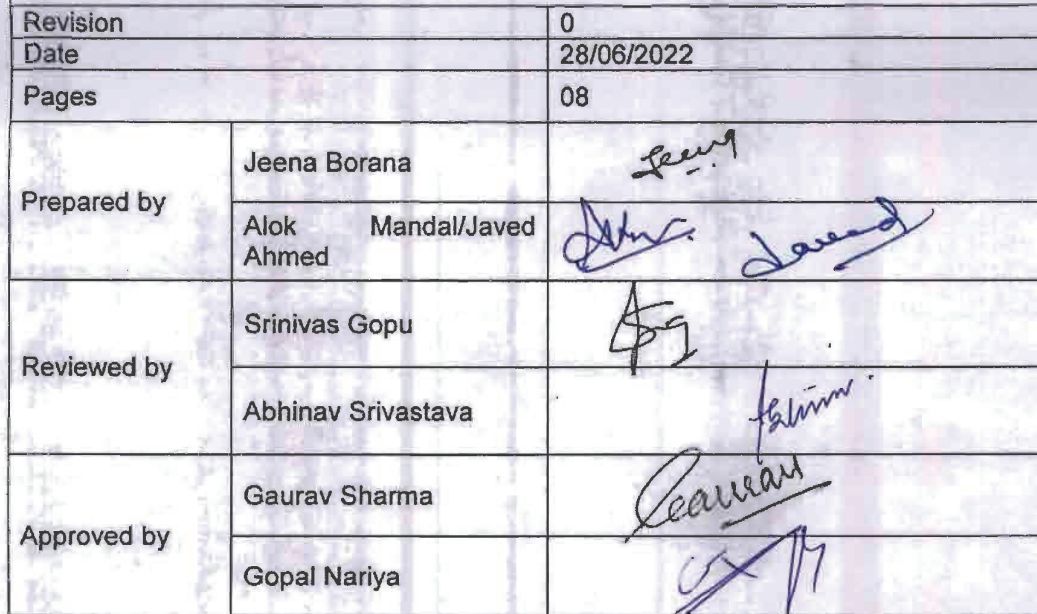 Revision 0
Date 28/06/2022
Pages 08
Prepared by
Jeena Borana
Jeena
Alok Mandal/Javed
Ahmed
Javed
Reviewed by
Srinivas Gopu
Abhinav Srivastava
Approved by
Gaurav Sharma
Gaurav
Gopal Nariya